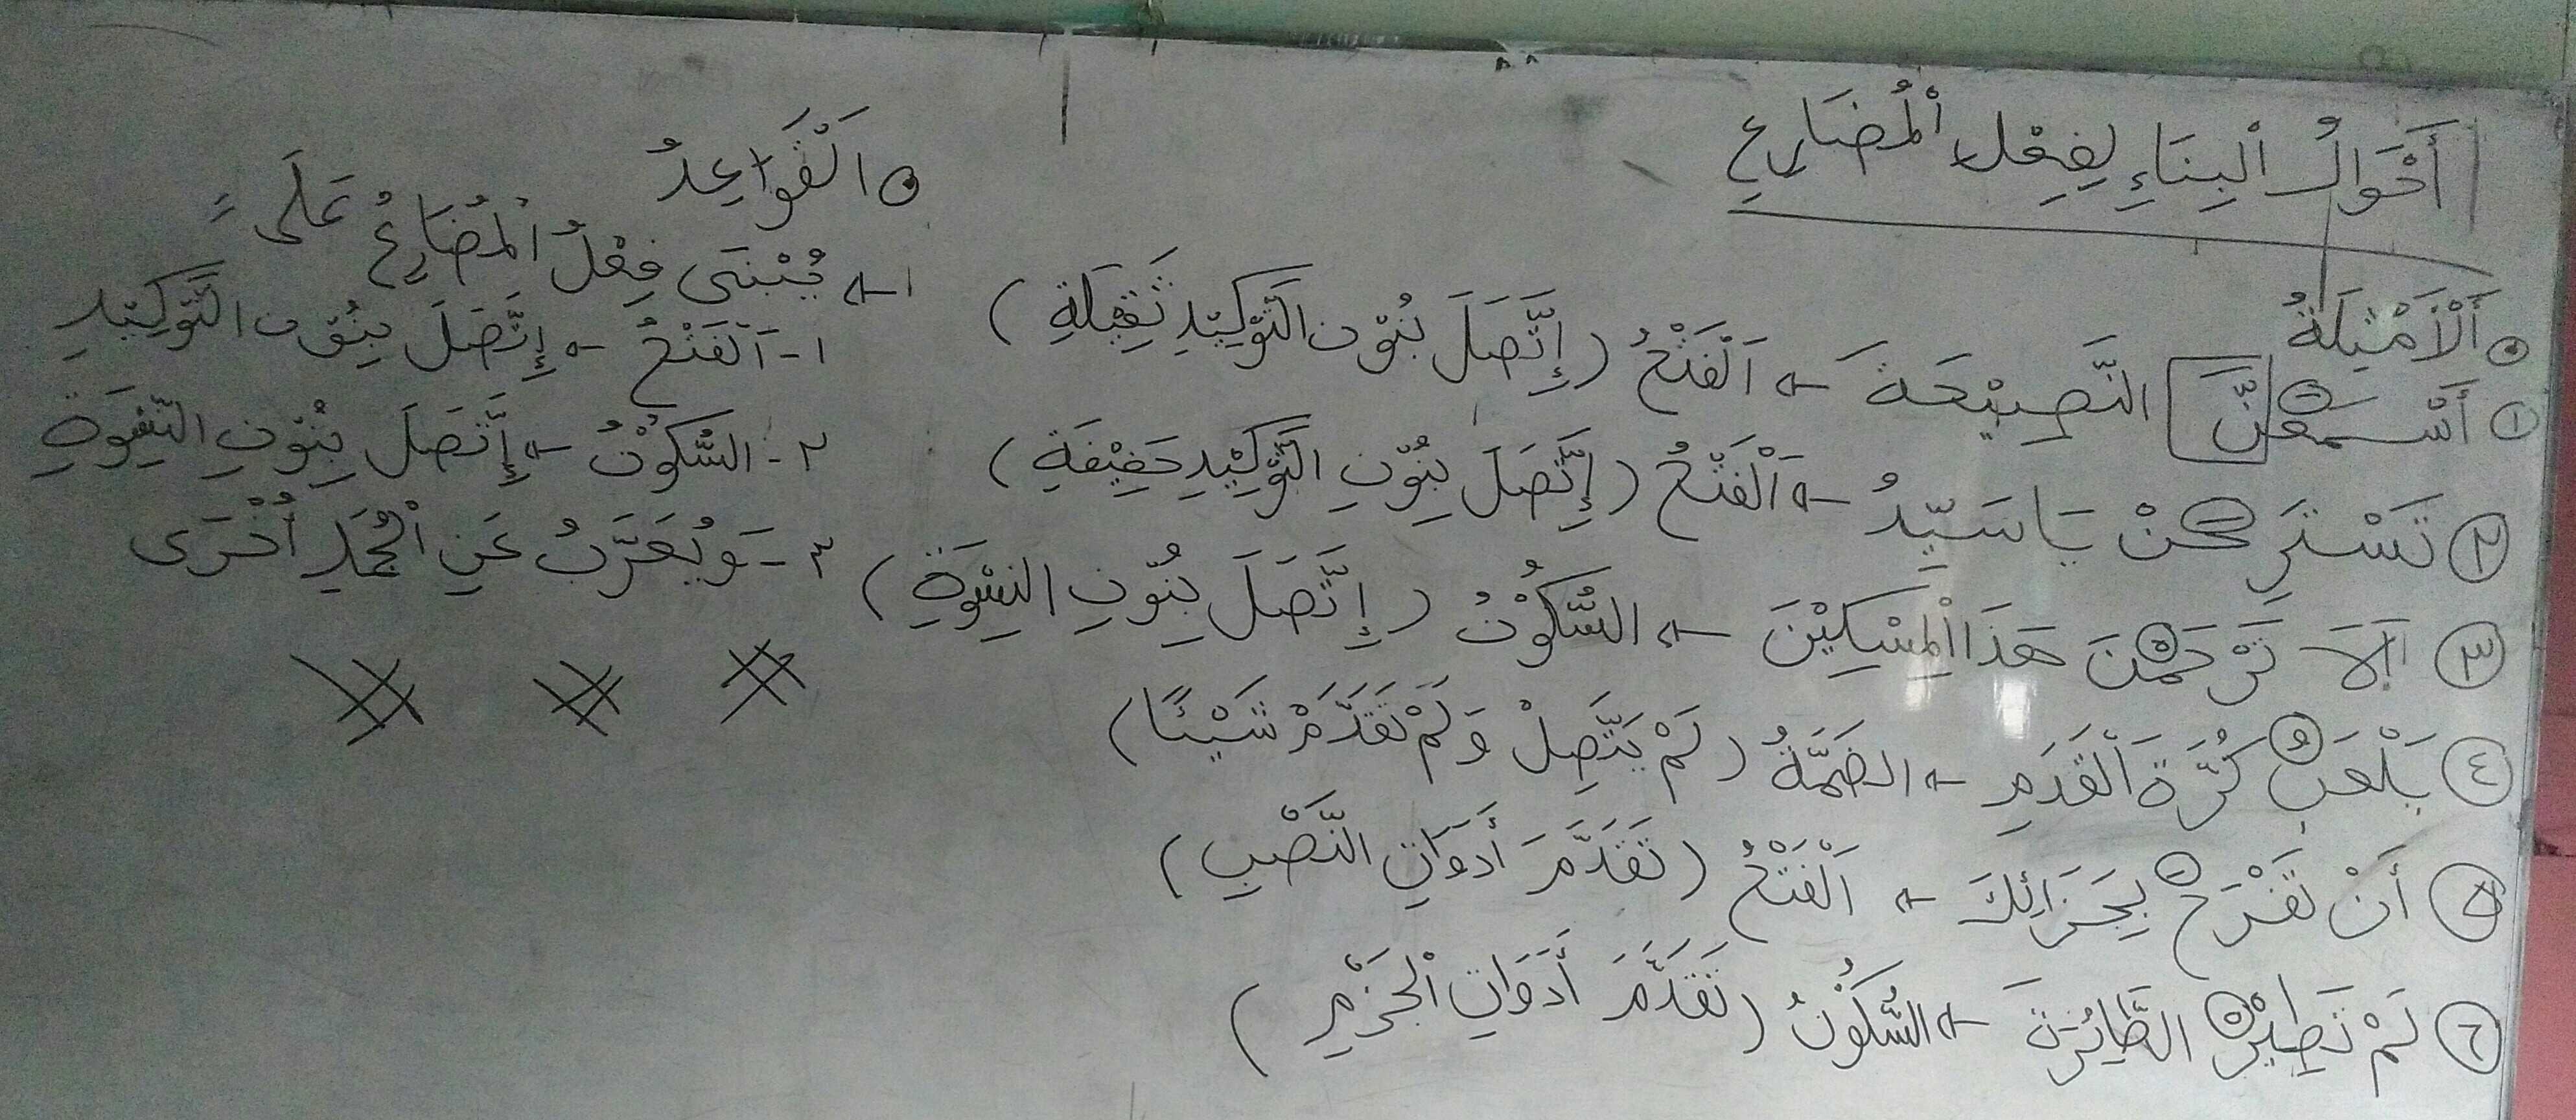 أَحْوَالُ الْبِنَاءِ لِفِعْلِ الْمُضَارِعِ
٥ اَلْأَمْثِلَةُ
١ أَسْمَعَنَّ النَّصِيْحَةَ ← اَلْفَتْحُ (إِتَّصَلَ بِنُوْنِ التَّوْكِيْدِ ثَقِيْلَةِ)
٢ تَسْتَرِيحَنْ يَا سَيِّدُ ← اَلْفَتْحُ (إِتَّصَلَ بِنُوْنِ التَّوْكِيْدِ خَفِيْفَةِ)
٣ اَلَا تَرْحَمْنَ هَذَا الْمِسْكِيْنَ ← السُّكُوْنُ (إِتَّصَلَ بِنُوْنِ النِسْوَةِ)
٤ يَلْعَبُ كُرَّةَ الْقَدَمِ ← الضَمَّةُ (لَمْ يَتَّصِلْ وَلَمْ تَقَدَّمْ شَيْئًا)
٥ أَنْ تَفْرَحَ بِجَزَائِكَ ← اَلْفَتْحُ (تَقَدَّمَ أَدَوَاتِ النَّصْبِ)
٦ لَمْ تَطِيْرْ الطَّائِرَةَ ← السُّكُوْنُ (تَقَدَّمَ أَدَوَاتِ الْجَزْمِ)
٥ اَلْقَوَاعِدُ
١ ← يُبْنَى فِعْلُ الْمُضَارِعُ عَلَى :
١- اَلْفَتْحُ ← إِتَّصَلَ بِنُوْنِ التَّوْكِيْدِ
٢- السُّكُوْنُ ← إِتَّصَلَ بِنُوْنِ النِّسْوَةِ
٣- وَيُعَرَّبُ عَنِ الْجُمَلِ أُخْرَى